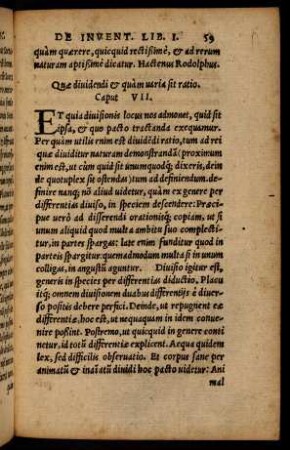 DE INVENT. LIB. I. 59
quàm quærere, quicquid rectißimè, & ad rerum
naturam aptißimè dicatur. Hactenus Rodolphus.
Quæ diuidendi & quàm uaria sit ratio.
Caput VII.
ET quia diuisionis locus nos admonet, quid sit
ipsa, & quo pacto tractanda exequamur.
Per quàm utilis enim est diuidēdi ratio, tum ad rei
quæ diuiditur naturam demonstrandā (proximum
enim est, ut cùm quid sit unumquodq; dixeris, dein
de quotuplex sit ostendas) tum ad definiendum. de
finire nanq; nō aliud uidetur, quàm ex genere per
differentias diuiso, in speciem descendere: Præci
pue uerò ad disserendi orationisq; copiam, ut si
unum aliquid quod multa ambitu suo complecti-
tur, in partes spargas: late enim funditur quod in
partes spargitur: quemadmodum multa si in unum
colligas, in angustū aguntur. Diuisio igitur est,
generis in species per differentias diductio. Placu
itq; omnem diuisionem duabus differentijs è diuer-
so positis debere perfici. Deinde, ut repugnent eæ
differentiæ, hoc est, ut nequaquam in idem conue-
nire poßint. Postremo, ut quicquid in genere conti
netur, id totū differentiæ explicent. Aequa quidem
lex, sed difficilis obseruatio. Et corpus sane per
animatū & inaīatū diuidi hoc pacto uidetur: Ani
mal